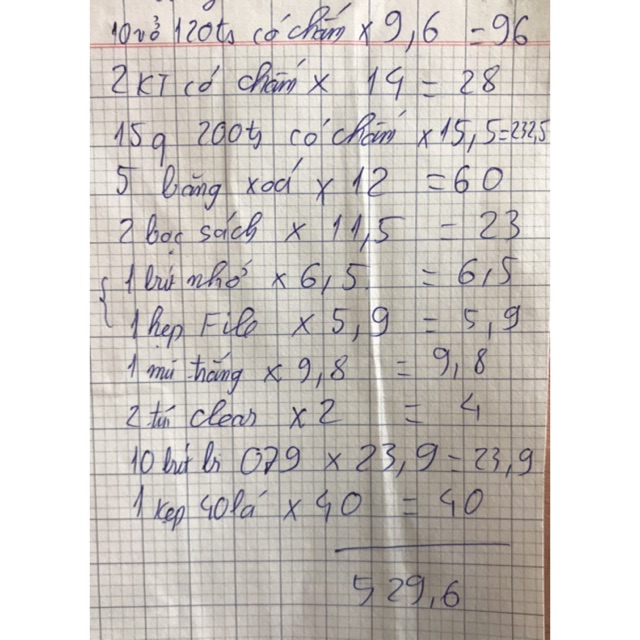 10 vở 120ts có chấm x 9,6 = 96
2 KT có chấm x 14 = 28
15q 200ts có chấm x 15,5 = 232,5
5 băng xoá x 12 = 60
2 bọc sách x 11,5 = 23
1 bút nhớ x 6,5 = 6,5
1 hẹp File x 5,9 = 5,9
1 mũ trắng x 9,8 = 9,8
2 túi clear x 2 = 4
10 bút bi 079 x 23,9 = 23,9
1 kẹp 40 lá x 40 = 40
529,6